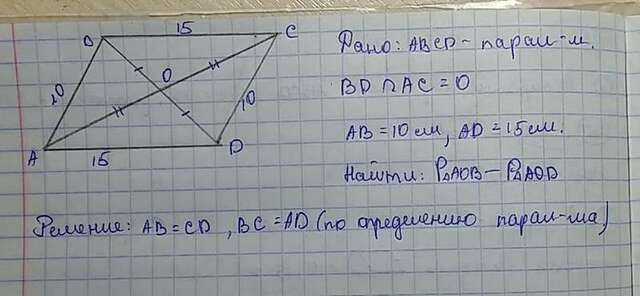 B 15 C
Дано: ABCD – парал-м.
O
10 10
BD ∩ AC = O
A 15 D
AB = 10 см, AD = 15 см.
Найти: P△AOB – P△AOD
Решение: AB = CD, BC = AD (по определению парал-ма)